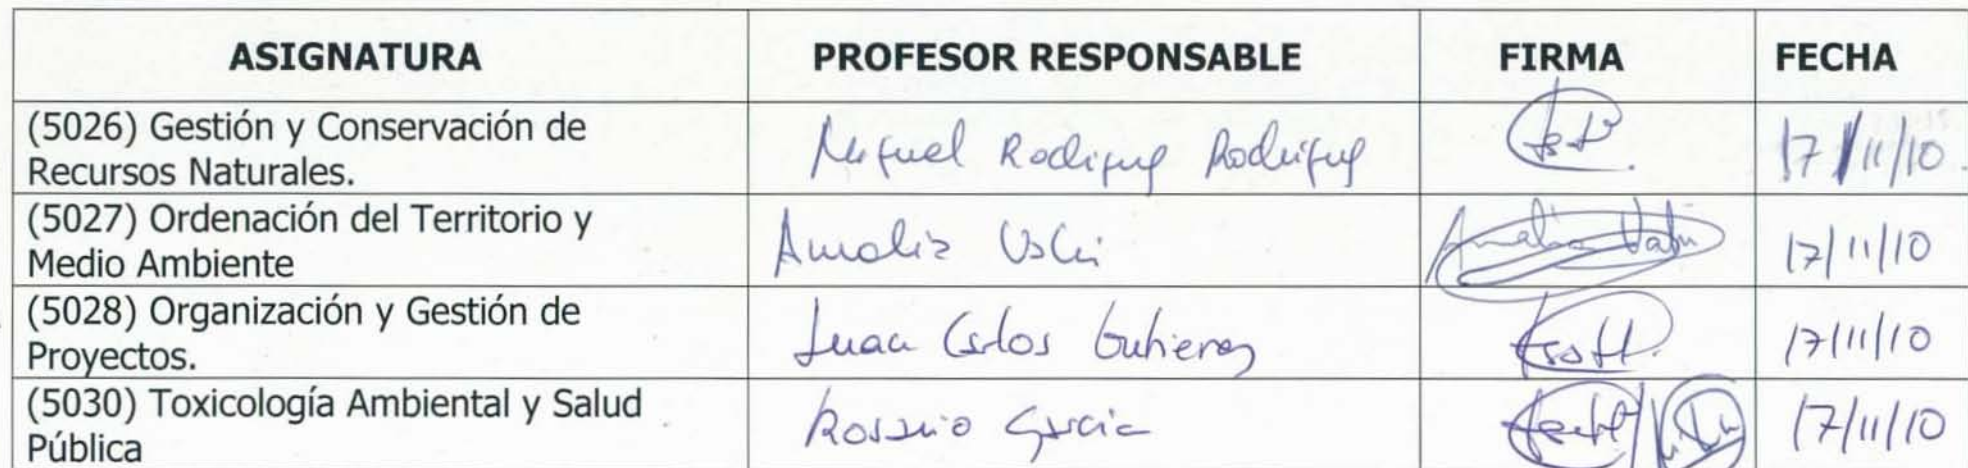 ASIGNATURA PROFESOR RESPONSABLE FIRMA FECHA
(5026) Gestión y Conservación de
Recursos Naturales.
Miguel Rodriguez Rodriguez 17/11/10
(5027) Ordenación del Territorio y
Medio Ambiente
Amalia 17/11/10
(5028) Organización y Gestión de
Proyectos.
Juan Carlos Gutierrez 17/11/10
(5030) Toxicología Ambiental y Salud
Pública
Rosario García 17/11/10